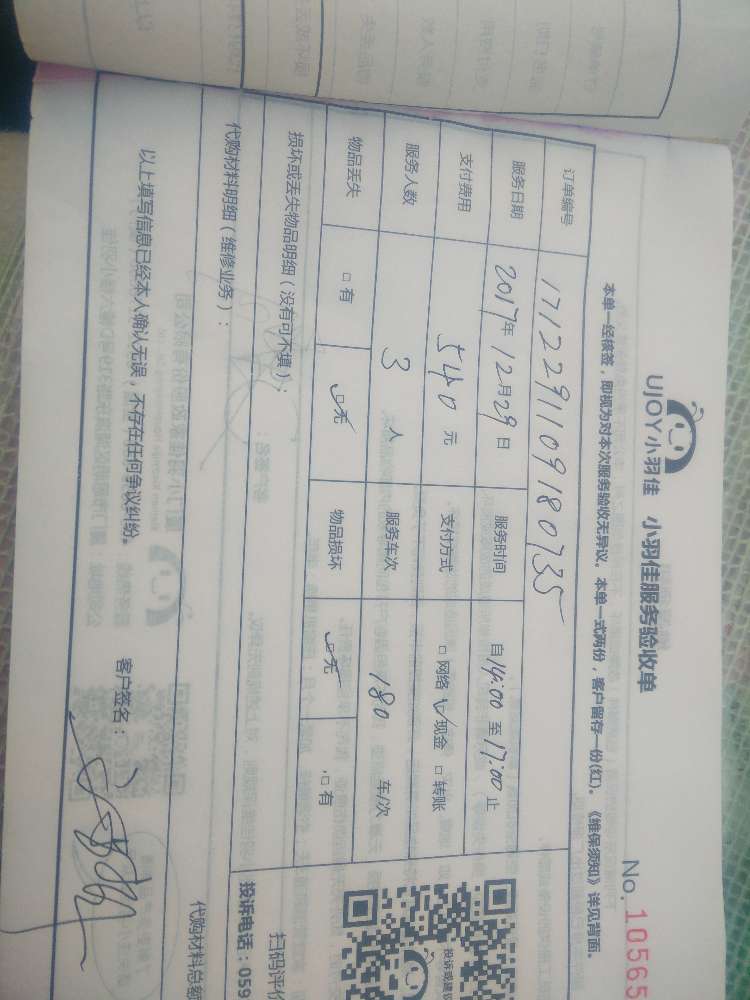 UJOY小羽佳 小羽佳服务验收单
No. 10565
本单一经核签，即视为对本次服务验收无异议。本单一式两份，客户留存一份(红)。《维保须知》详见背面。
订单编号 1712291109180735
服务日期 2017年12月29日 服务时间 自14:00至17:00止
支付费用 540元 支付方式 □网络 ☑现金 □转账
服务人数 3人 服务车次 180 车/次
物品丢失 □有 ☑无 物品损坏 ☑无 □有
损坏或丢失物品明细（没有可不填）：
代购材料明细（维修业务）： 代购材料总额
以上填写信息已经本人确认无误，不存在任何争议纠纷。 客户签名：
投诉或建议
扫码评价
投诉电话：059